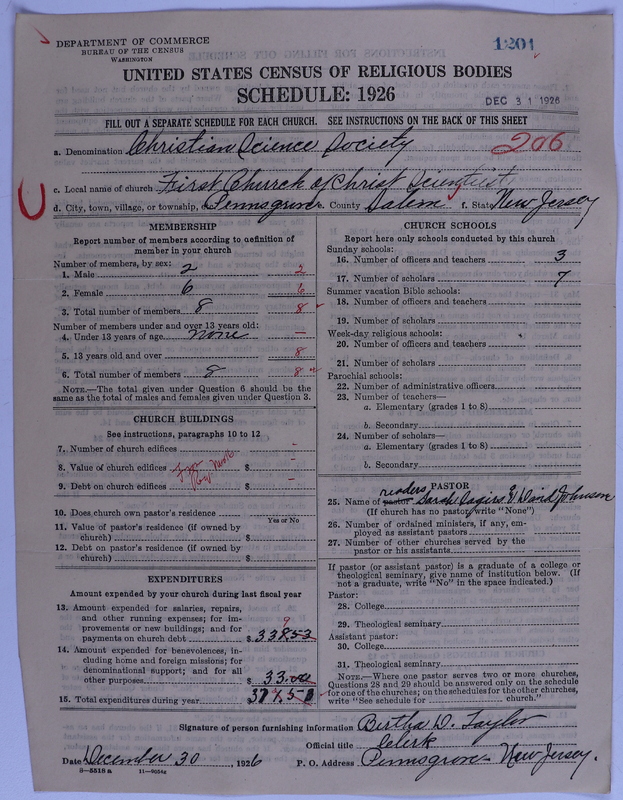 DEPARTMENT OF COMMERCE
BUREAU OF THE CENSUS
WASHINGTON
1201
UNITED STATES CENSUS OF RELIGIOUS BODIES
SCHEDULE: 1926
DEC 31 1926
FILL OUT A SEPARATE SCHEDULE FOR EACH CHURCH. SEE INSTRUCTIONS ON THE BACK OF THIS SHEET
a. Denomination Christian Science Society 206
c. Local name of church First Church of Christ Scientist
d. City, town, village, or township, Pennsgrove County Salem f. State New Jersey
MEMBERSHIP
Report number of members according to definition of
member in your church
Number of members, by sex:
1. Male 2 2
2. Female 6 6
3. Total number of members 8 8
Number of members under and over 13 years old:
4. Under 13 years of age none —
5. 13 years old and over 8
6. Total number of members 8 8
NOTE.—The total given under Question 6 should be the
same as the total of males and females given under Question 3.
CHURCH BUILDINGS
See instructions, paragraphs 10 to 12
7. Number of church edifices -
8. Value of church edifices $ -
9. Debt on church edifices $ -
10. Does church own pastor's residence
Yes or No
11. Value of pastor's residence (if owned by
church) $
12. Debt on pastor's residence (if owned by
church) $
EXPENDITURES
Amount expended by your church during last fiscal year
13. Amount expended for salaries, repairs,
and other running expenses; for im-
provements or new buildings; and for
payments on church debt $
14. Amount expended for benevolences, in-
cluding home and foreign missions; for
denominational support; and for all
other purposes $ 33.00
15. Total expenditures during year $
CHURCH SCHOOLS
Report here only schools conducted by this church
Sunday schools:
16. Number of officers and teachers 3
17. Number of scholars 7
Summer vacation Bible schools:
18. Number of officers and teachers
19. Number of scholars
Week-day religious schools:
20. Number of officers and teachers
21. Number of scholars
Parochial schools:
22. Number of administrative officers
23. Number of teachers—
a. Elementary (grades 1 to 8)
b. Secondary
24. Number of scholars—
a. Elementary (grades 1 to 8)
b. Secondary
PASTOR
readers
25. Name of pastor Sarah David Johnson
(If church has no pastor, write "None")
26. Number of ordained ministers, if any, em-
ployed as assistant pastors
27. Number of other churches served by the
pastor or his assistants
If pastor (or assistant pastor) is a graduate of a college or
theological seminary, give name of institution below. (If
not a graduate, write "No" in the space indicated.)
Pastor:
28. College
29. Theological seminary
Assistant pastor:
30. College
31. Theological seminary
NOTE.—Where one pastor serves two or more churches,
Questions 28 and 29 should be answered only on the schedule
for one of the churches; on the schedules for the other churches,
write "See schedule for church."
Signature of person furnishing information Bertha D. Taylor
Official title Clerk
Date December 30, 1926 P. O. Address Pennsgrove New Jersey.
8-5518 a 11-9054a